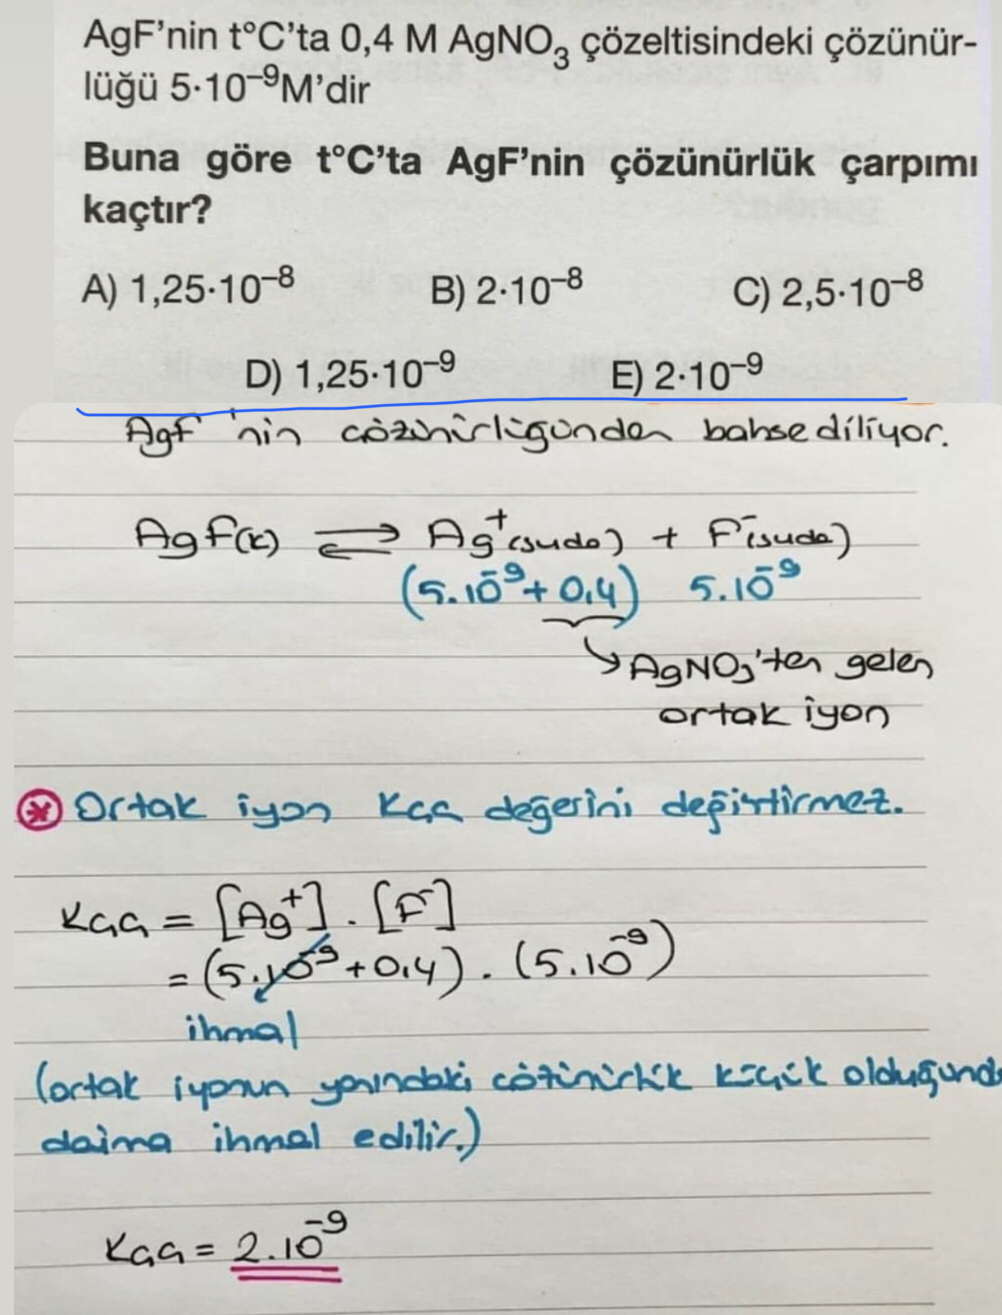 AgF’nin t°C’ta 0,4 M AgNO₃ çözeltisindeki çözünür-
lüğü 5·10⁻⁹M’dir
Buna göre t°C’ta AgF’nin çözünürlük çarpımı
kaçtır?
A) 1,25·10⁻⁸ B) 2·10⁻⁸ C) 2,5·10⁻⁸
D) 1,25·10⁻⁹ E) 2·10⁻⁹
AgF 'nin çözünürlüğünden bahsediliyor.
AgF(k) ⇌ Ag⁺(suda) + F⁻(suda)
(5.10⁻⁹+0,4) 5.10⁻⁹
↳ AgNO₃'ten gelen
ortak iyon
* Ortak iyon Kçç değerini değiştirmez.
Kçç = [Ag⁺] . [F⁻]
= (5.10⁻⁹+0,4) . (5.10⁻⁹)
ihmal
(ortak iyonun yanındaki çözünürlük küçük olduğund
daima ihmal edilir.)
Kçç = 2.10⁻⁹